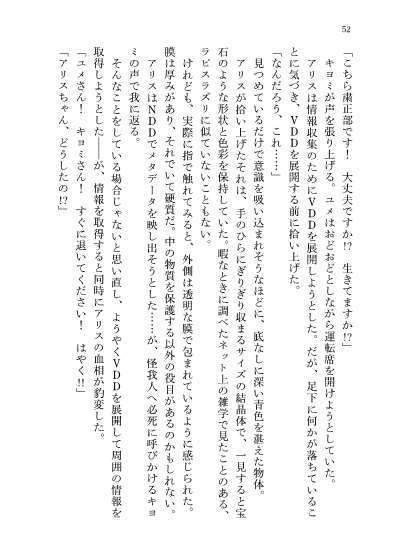 52
「こちら粛正部です！　大丈夫ですか!?　生きてますか!?」
キヨミが声を張り上げる。ユメはおどおどとしながら運転席を開けようとしていた。
アリスは情報収集のためにVDDを展開しようとした。だが、足下に何かが落ちているこ
とに気づき、VDDを展開する前に拾い上げた。
「なんだろう、これ……」
見つめているだけで意識を吸い込まれそうなほどに、底なしに深い青色を湛えた物体。
アリスが拾い上げたそれは、手のひらにぎりぎり収まるサイズの結晶体で、一見すると宝
石のような形状と色彩を保持していた。暇なときに調べたネット上の雑学で見たことのある、
ラピスラズリに似ていないこともない。
けれども、実際に指で触れてみると、外側は透明な膜で包まれているように感じられた。
膜は厚みがあり、それでいて硬質だ。中の物質を保護する以外の役目があるのかもしれない。
アリスはNDDでメタデータを映し出そうとした……が、怪我人へ必死に呼びかけるキヨ
ミの声で我に返る。
そんなことをしている場合じゃないと思い直し、ようやくVDDを展開して周囲の情報を
取得しようとした――が、情報を取得すると同時にアリスの血相が豹変した。
「ユメさん！　キヨミさん！　すぐに退いてください！　はやく!!」
「アリスちゃん、どうしたの!?」